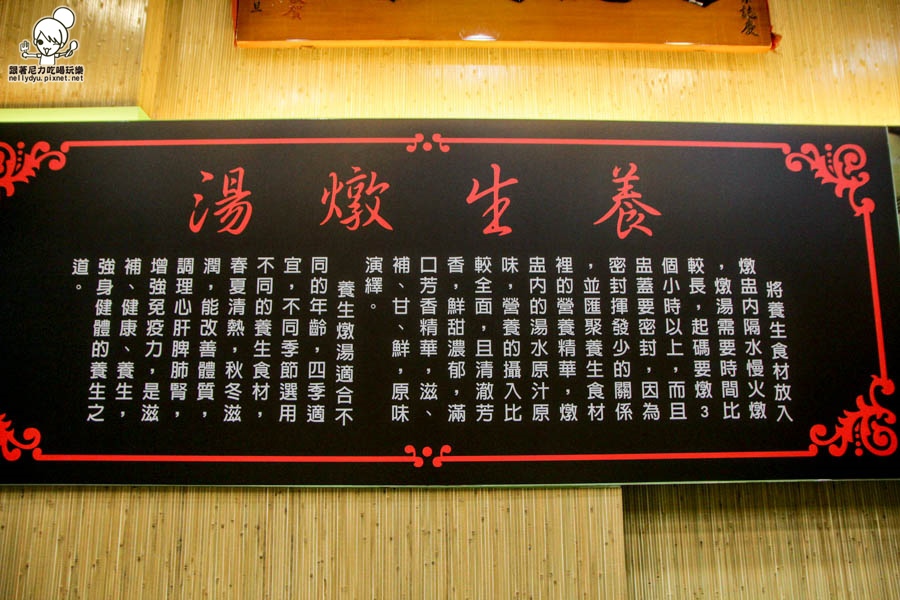 跟著尼力吃喝玩樂
nellydyu.pixnet.net
養生燉湯
將養生食材放入
燉盅內隔水慢火燉
，燉湯需要時間比
較長，起碼要燉3
個小時以上，而且
盅蓋要密封，因為
密封揮發少的關係
，並匯聚養生食材
裡的營養精華，燉
盅內的湯水原汁原
味，營養的攝入比
較全面，且清澈芳
香，鮮甜濃郁，滿
口芳香精華，滋、
補、甘、鮮，原味
演繹。
養生燉湯適合不
同的年齡，四季適
宜，不同季節選用
不同的養生食材，
春夏清熱，秋冬滋
潤，能改善體質，
調理心肝脾肺腎，
增強免疫力，是滋
補、健康、養生，
強身健體的養生之
道。